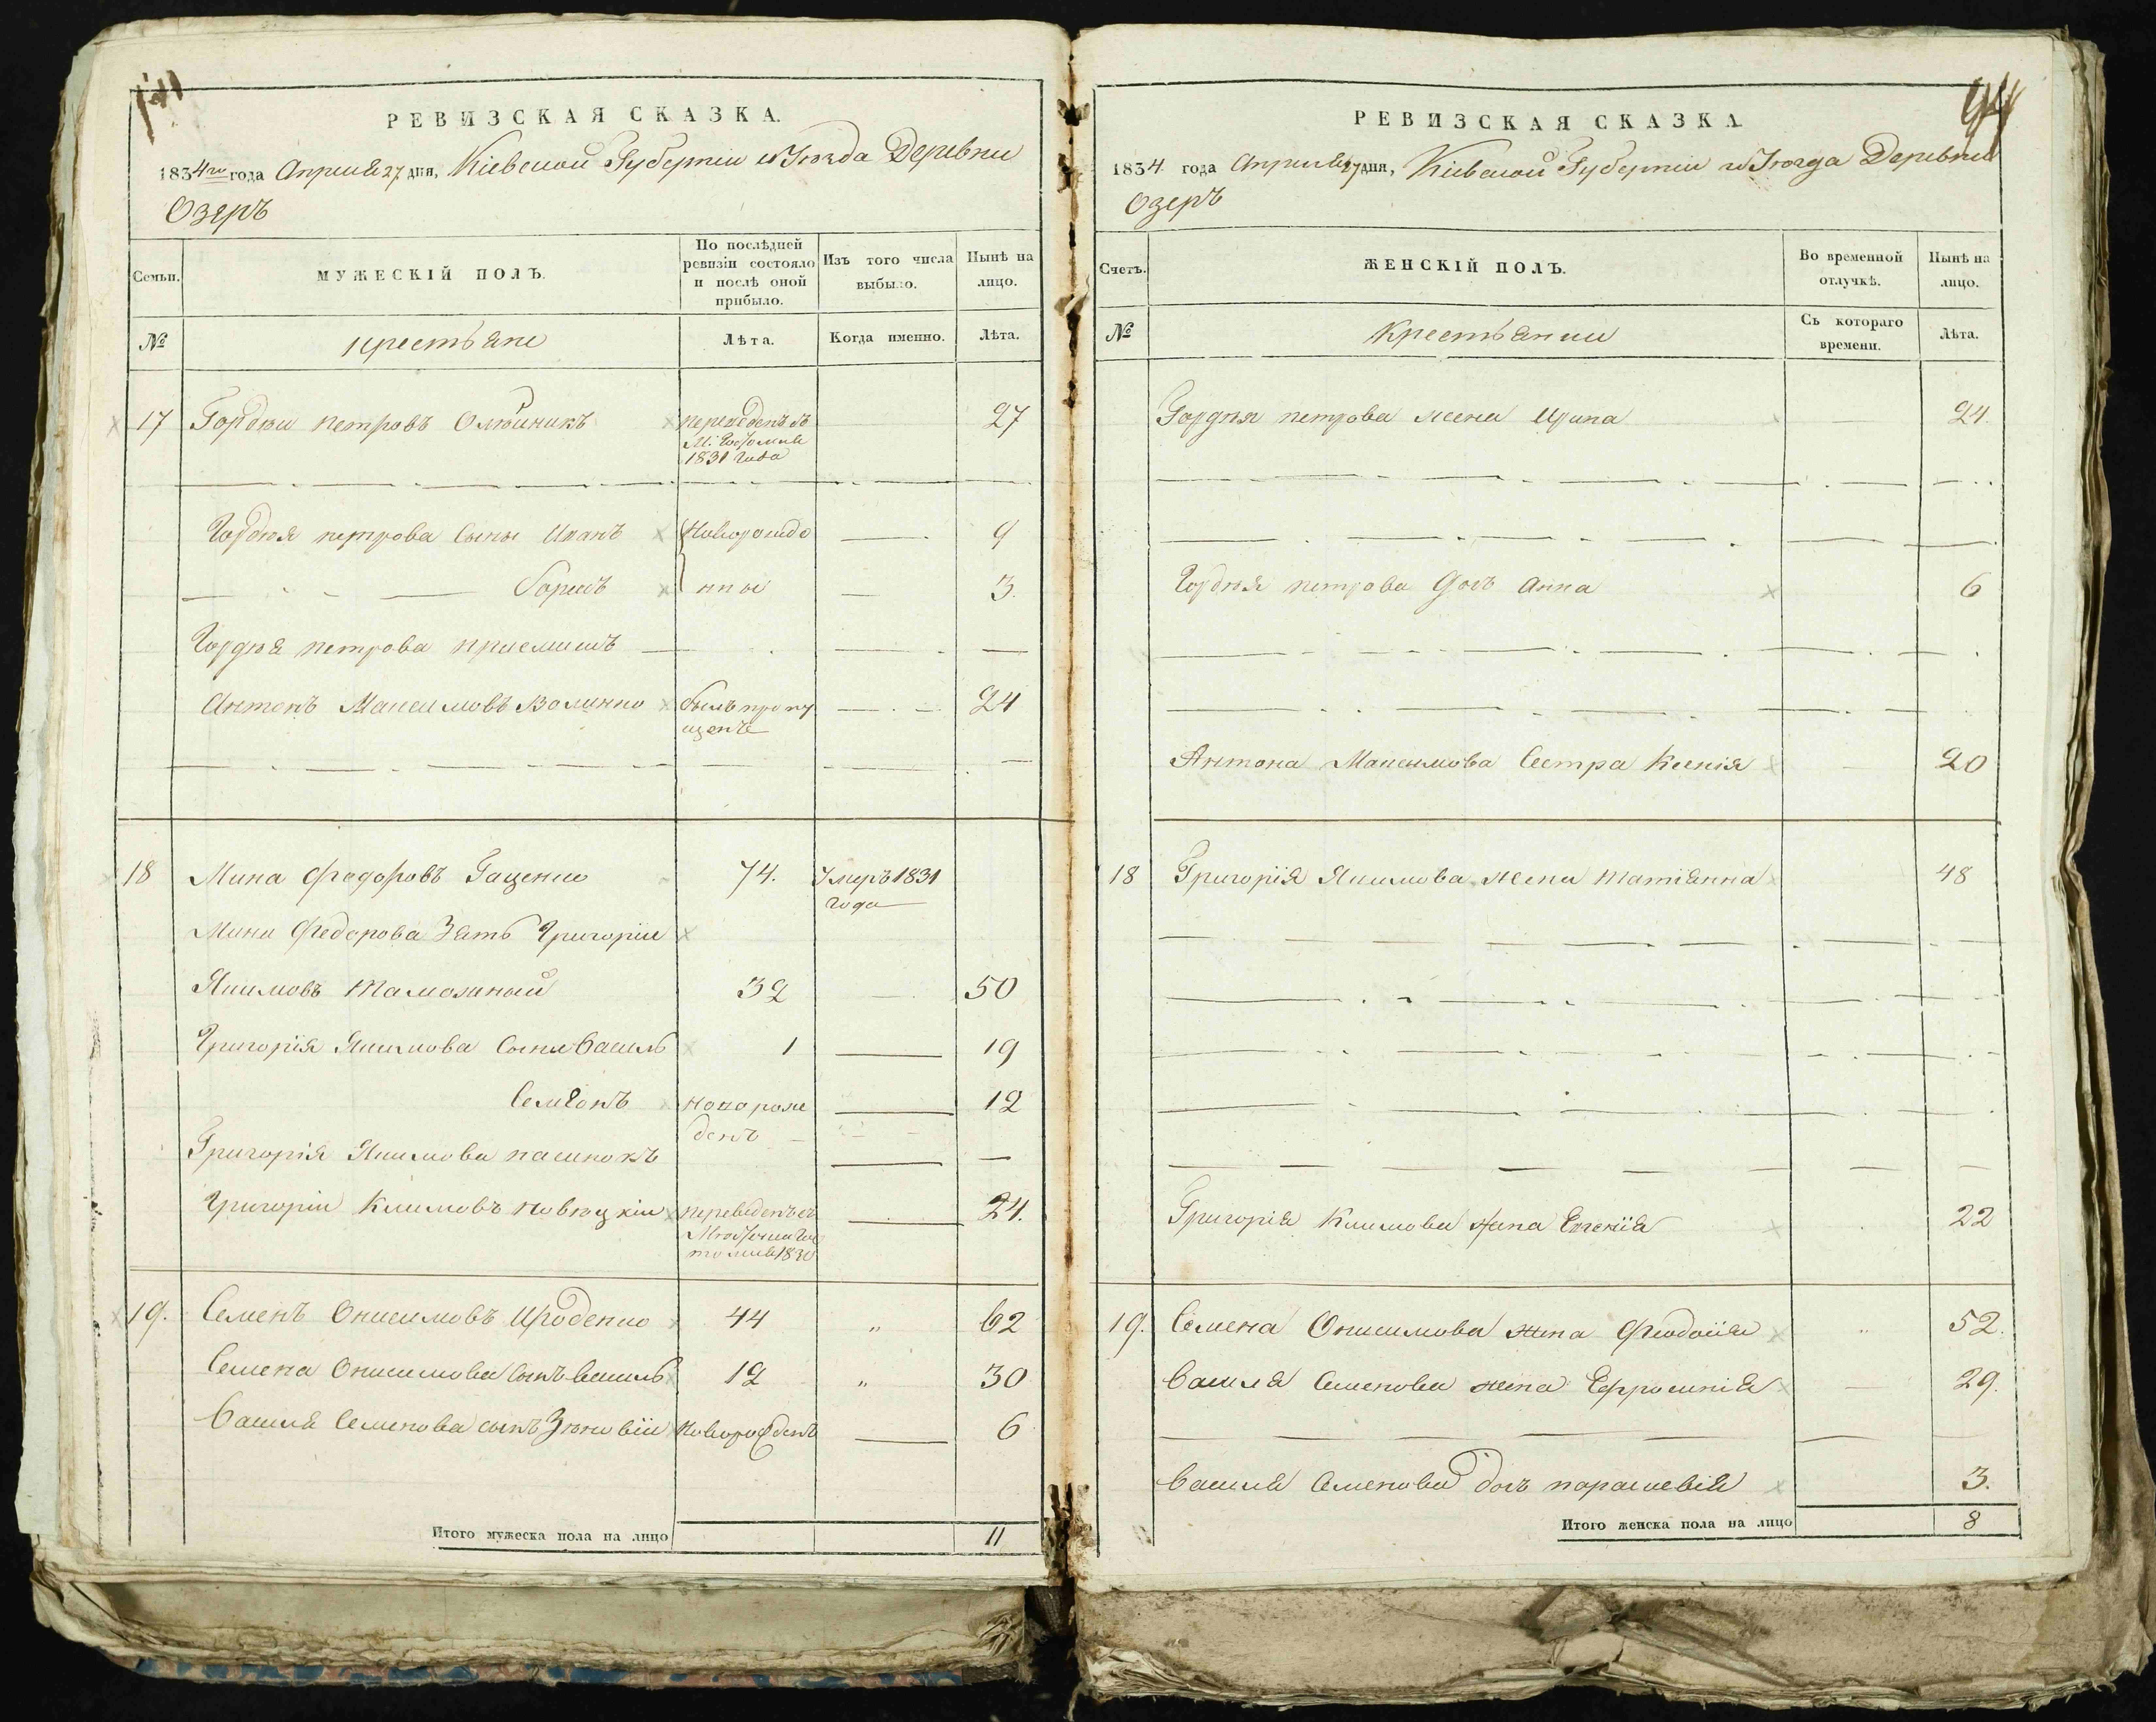 РЕВИЗСКАЯ СКАЗКА.
1834го года Апреля 27 дня, Кіевской Губерніи и Уезда Деревни
Озеръ
Семьи.
МУЖЕСКІЙ ПОЛЪ.
По послѣдней
ревизіи состояло
и послѣ оной
прибыло.
Изъ того числа
выбыло.
Нынѣ на
лицо.
№
крестьяне
Лѣта.
Когда именно.
Лѣта.
17 Гордѣй петровъ Олѣйникъ переведенъ съ 27
1831 года
Гордѣя петрова сыны Иванъ Новорожде 9
Борисъ нны 3.
Гордѣя петрова приемышъ
Антонъ Максимовъ былъ пропу 24
щенъ
18 Мина Федоровъ Гаценко 74. Умеръ 1831
года
Мины Федорова Зять Григорій
Якимовъ 32 50
Григорія Якимова сыны Василь 1 19
Семіонъ новорож 12
денъ
Григорія Якимова пасынокъ
Григорій Климовъ переведенъ съ 24.
19. Семенъ Онисимовъ Ироденко 44 „ 62
Семена Онисимова сынъ Василь 12 „ 30
Василя Семенова сынъ Зѣновій Новорожденъ 6
Итого мужеска пола на лицо 11
РЕВИЗСКАЯ СКАЗКА
1834 года Апреля 27 дня, Кіевской Губерніи и Уезда Деревни
Озеръ
Счетъ.
ЖЕНСКІЙ ПОЛЪ.
Во временной
отлучкѣ.
Нынѣ на
лицо.
№
Крестьянки
Съ котораго
времени.
Лѣта.
Гордѣя петрова жена Ирина 24.
Гордѣя петрова дочь Анна 6
Антона Максимова Сестра Ксенія 20
18 Григорія Якимова жена Татіанна 48
Григорія Климова жена Евгенія 22
19. Семена Онисимова жена Феодосія „ 52.
Василя Семенова жена Ефросинія 29.
Василя Семенова дочь параскевія 3.
Итого женска пола на лицо 8